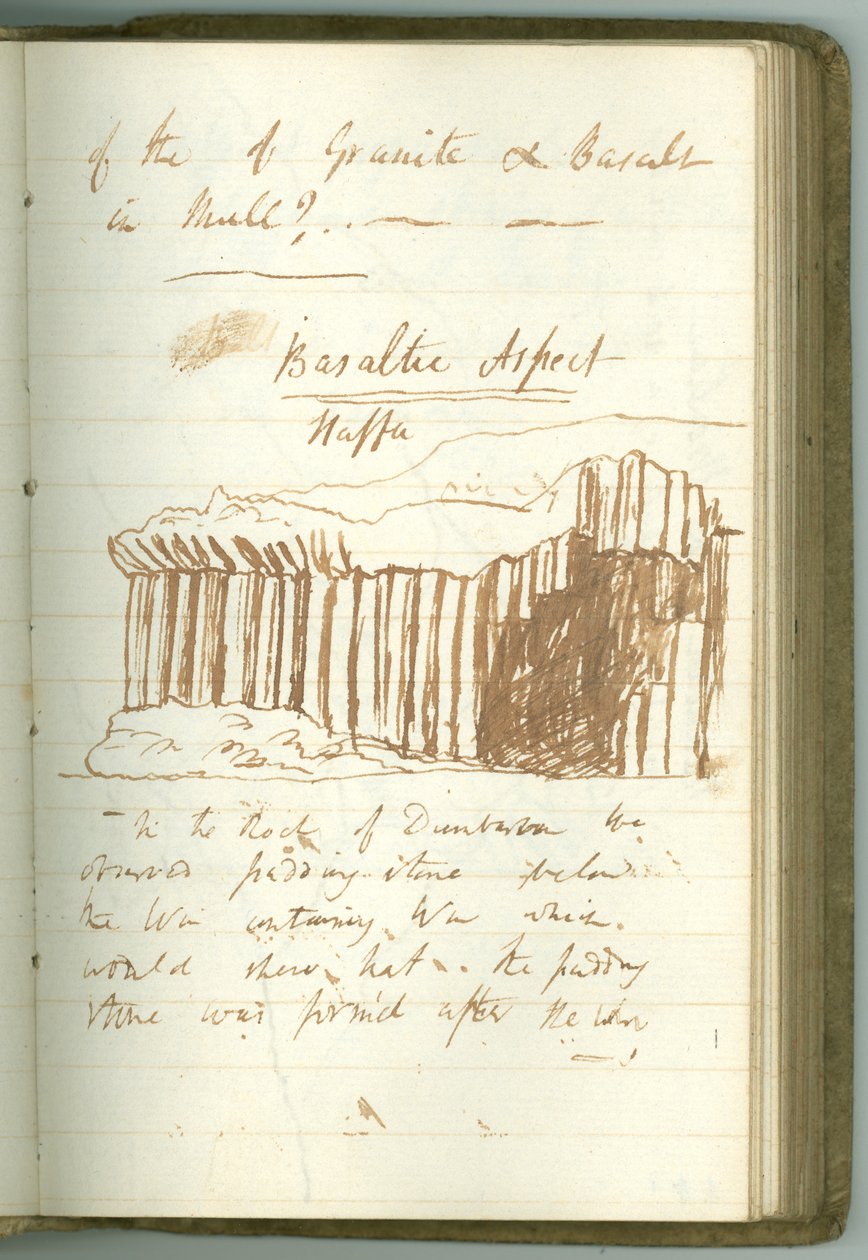 of the of Granite & Basalt
in Mull?..— —
Basaltic Aspect
Staffa
– In the Rock of Dumbarton we
observed pudding stone below
the Win containing Win which
would shew that the pudding
stone was form'd after the